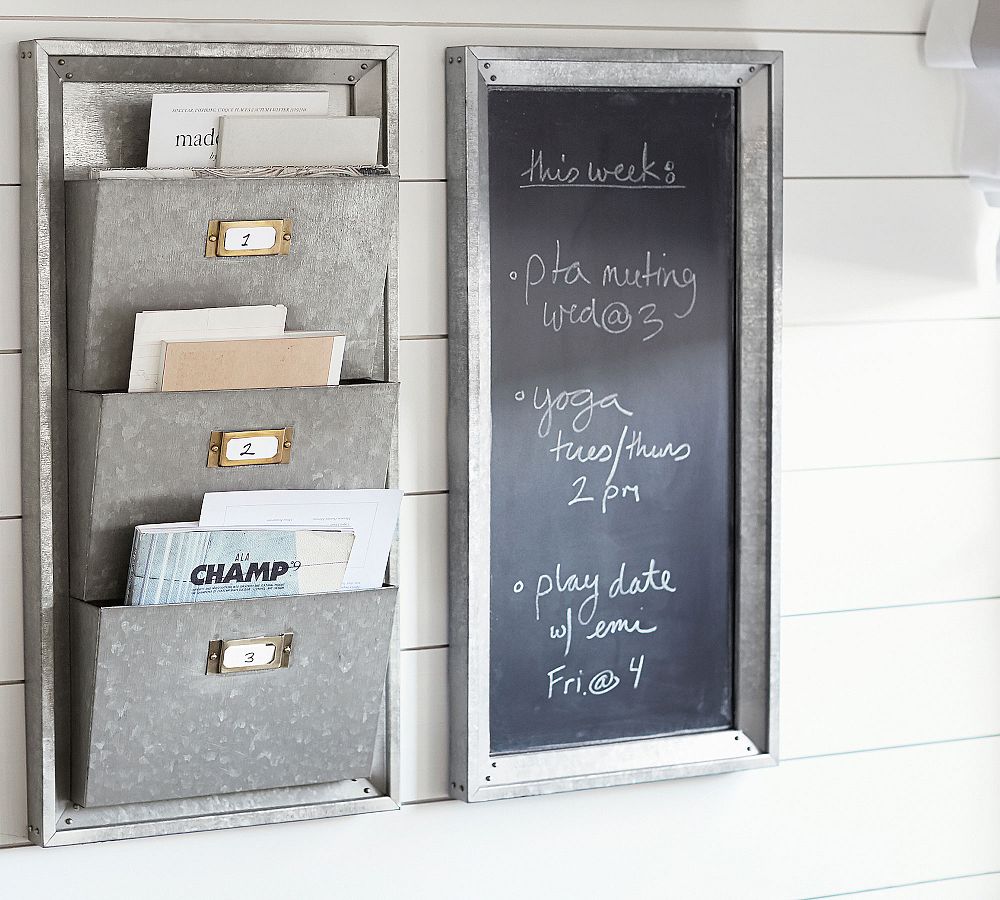 made
1
2
ALA
CHAMP°9
3
this week:
• pta meeting
wed@3
• yoga
tues/thurs
2 pm
• play date
w/ emi
Fri.@ 4